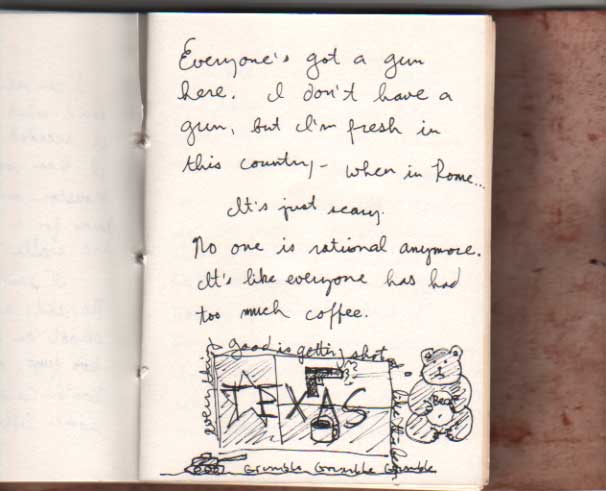 Everyone's got a gun
here. I don't have a
gun, but I'm fresh in
this country – when in Rome...
It's just scary.
No one is rational anymore.
It's like everyone has had
too much coffee.
everything
good is getting shot
like this
TEXAS
Bear
Grumble Grumble Grumble